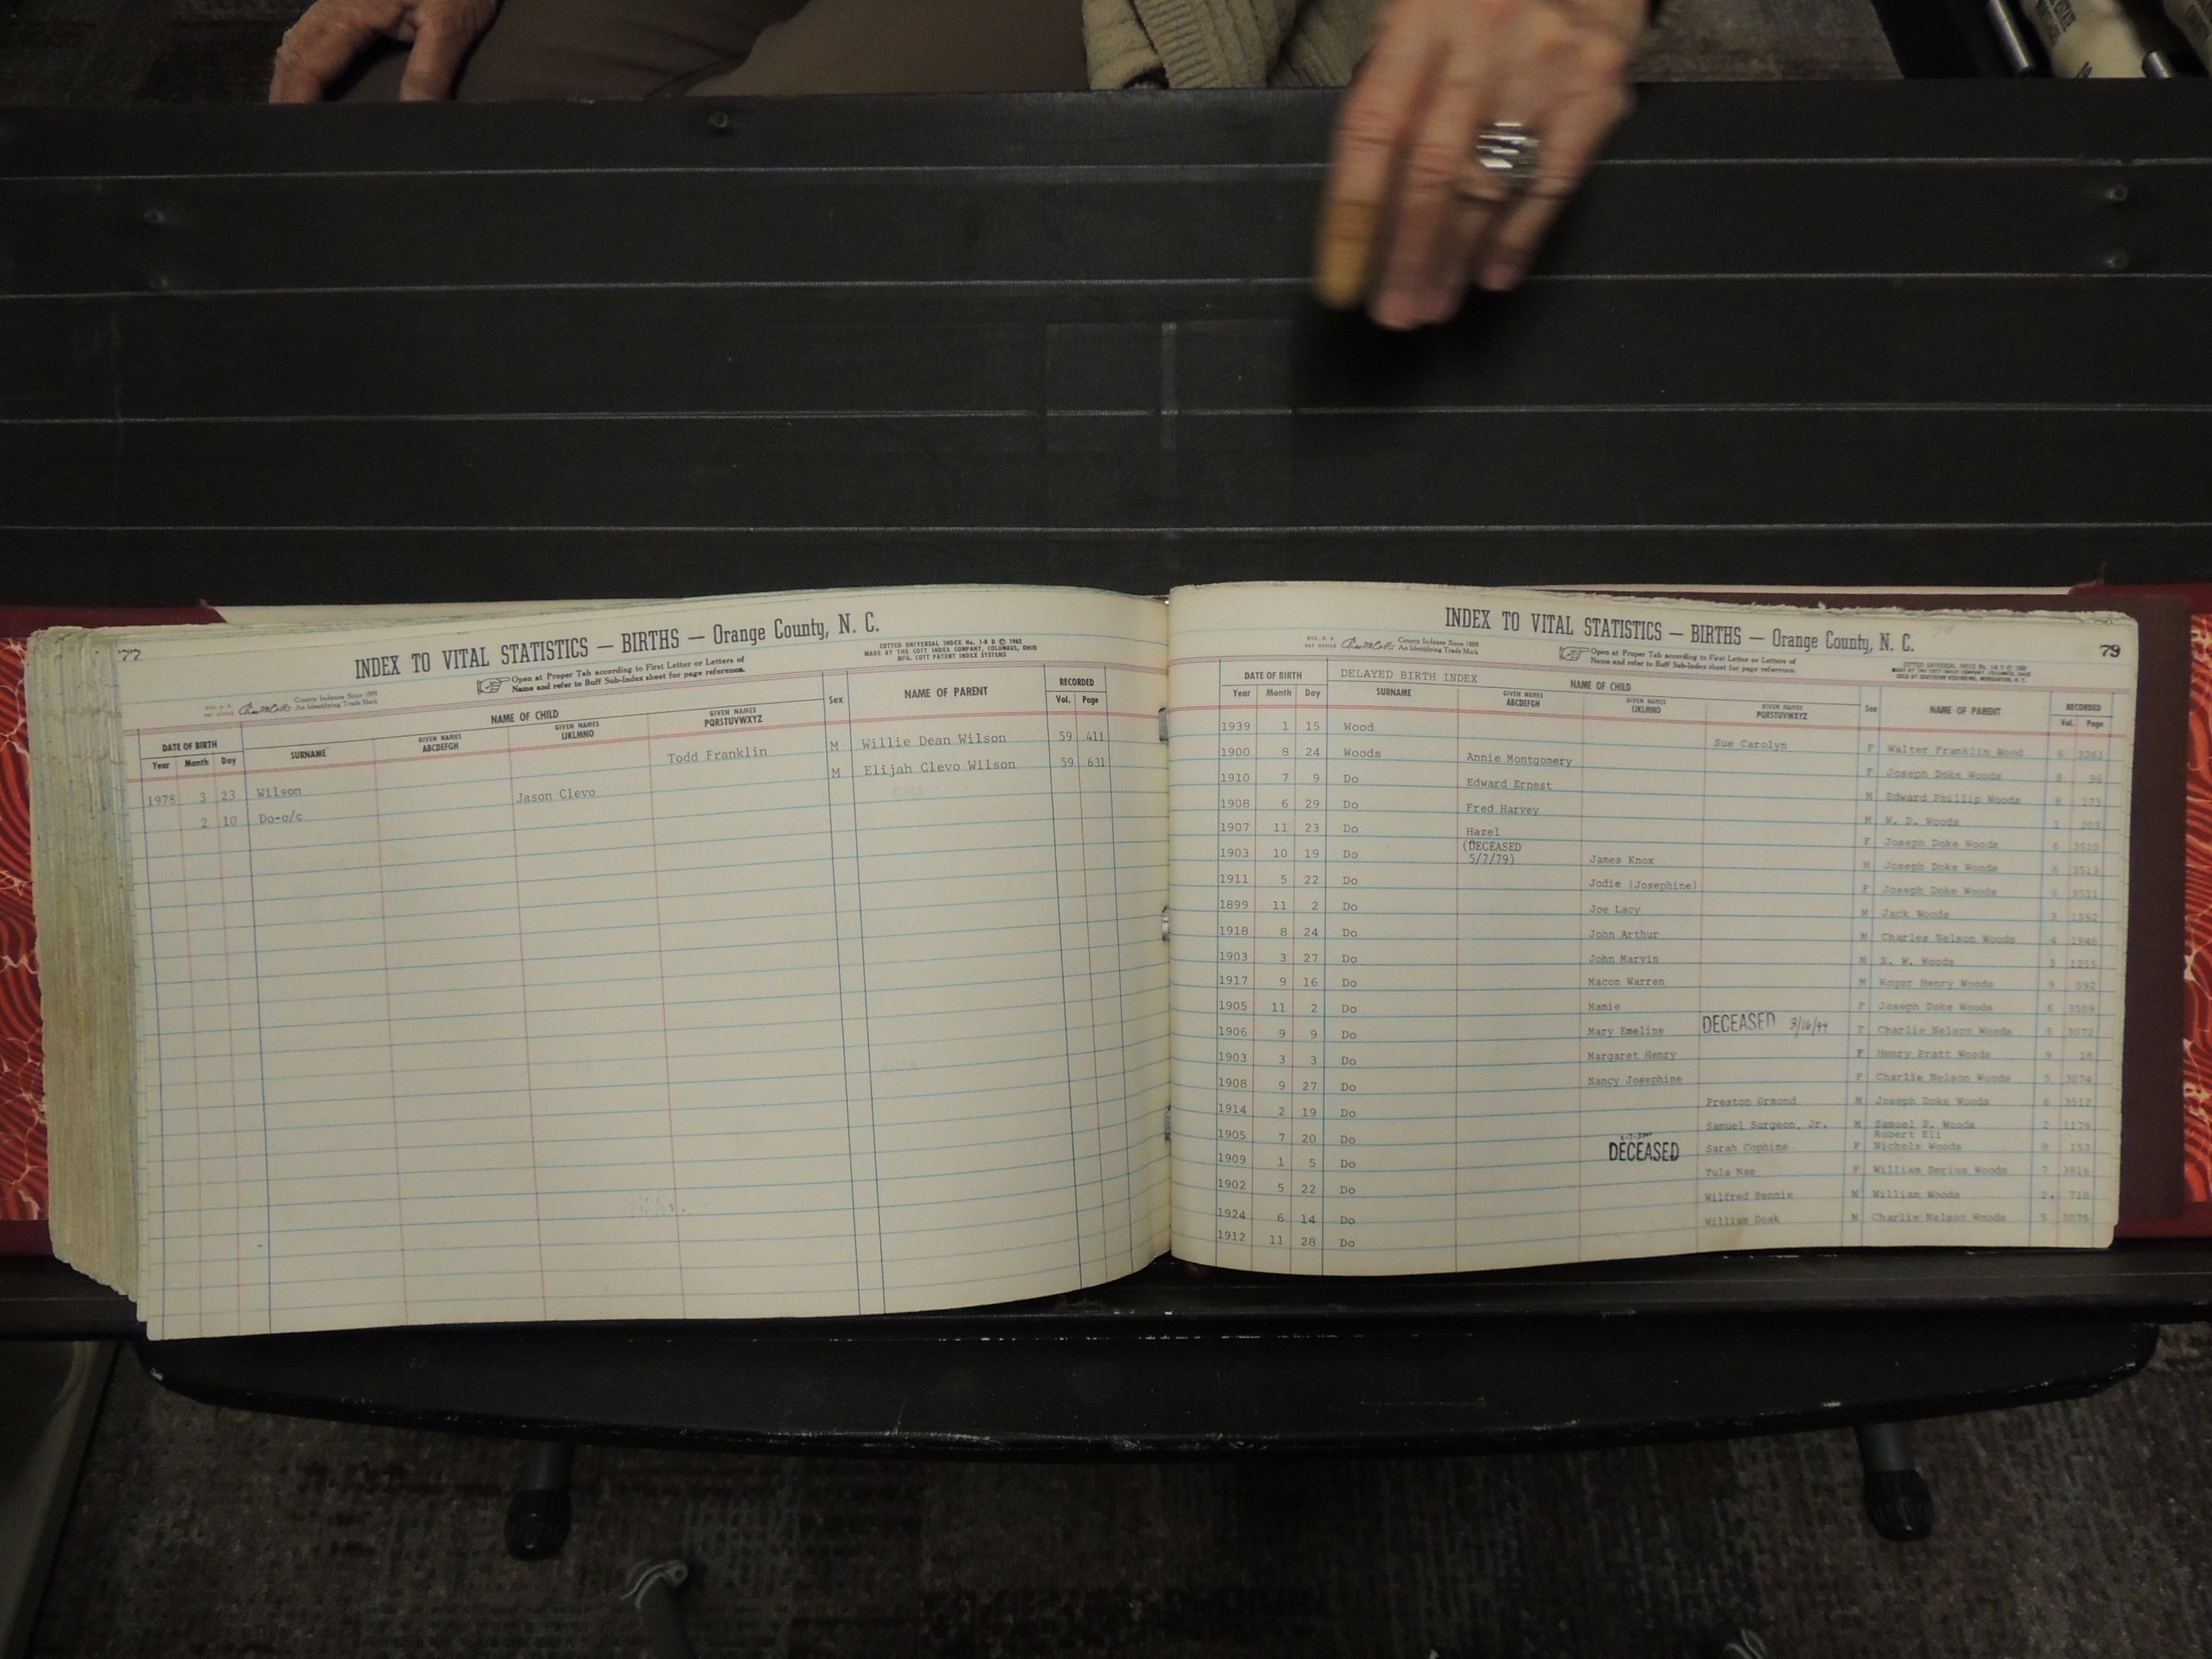 77
INDEX TO VITAL STATISTICS — BIRTHS — Orange County, N. C.
COTTCO UNIVERSAL INDEX No. 1-8 D © 1962
MADE BY THE COTT INDEX COMPANY, COLUMBUS, OHIO
MFG. COTT PATENT INDEX SYSTEMS
Open at Proper Tab according to First Letter or Letters of
Name and refer to Buff Sub-Index sheet for page reference.
County Indexes Since 1888
An Identifying Trade Mark
DATE OF BIRTH NAME OF CHILD Sex NAME OF PARENT RECORDED
Year Month Day SURNAME GIVEN NAMES ABCDEFGH GIVEN NAMES IJKLMNO GIVEN NAMES PQRSTUVWXYZ Vol. Page
1978 3 23 Wilson Todd Franklin M Willie Dean Wilson 59 411
2 10 Do-o/c Jason Clevo M Elijah Clevo Wilson 59 631
79
INDEX TO VITAL STATISTICS — BIRTHS — Orange County, N. C.
County Indexes Since 1888
An Identifying Trade Mark
Open at Proper Tab according to First Letter or Letters of
Name and refer to Buff Sub-Index sheet for page reference.
DELAYED BIRTH INDEX
DATE OF BIRTH NAME OF CHILD Sex NAME OF PARENT RECORDED
Year Month Day SURNAME GIVEN NAMES ABCDEFGH GIVEN NAMES IJKLMNO GIVEN NAMES PQRSTUVWXYZ Vol. Page
1939 1 15 Wood Sue Carolyn F Walter Franklin Wood 6 3261
1900 8 24 Woods Annie Montgomery F Joseph Doke Woods 8 96
1910 7 9 Do Edward Ernest M Edward Phillip Woods 8 173
1908 6 29 Do Fred Harvey M W. D. Woods 1 203
1907 11 23 Do Hazel F Joseph Doke Woods 6 3510
(DECEASED
5/7/79)
1903 10 19 Do James Knox M Joseph Doke Woods 3513
1911 5 22 Do Jodie (Josephine) F Joseph Doke Woods 6 3511
1899 11 2 Do Joe Lacy M Jack Woods 3 1592
1918 8 24 Do John Arthur M Charles Nelson Woods 4 1946
1903 3 27 Do John Marvin M E. W. Woods 3 1255
1917 9 16 Do Macon Warren M Roger Henry Woods 9 592
1905 11 2 Do Mamie F Joseph Doke Woods 6 3509
1906 9 9 Do Mary Emeline DECEASED 3/16/94 F Charlie Nelson Woods 5 3072
1903 3 3 Do Margaret Henry F Henry Pratt Woods 9 18
1908 9 27 Do Nancy Josephine F Charlie Nelson Woods 5 3074
1914 2 19 Do Preston Ormond M Joseph Doke Woods 6 3512
1905 7 20 Do Samuel Surgeon, Jr. M Samuel S. Woods 2 1179
Robert Eli
1909 1 5 Do DECEASED Sarah Cophine F Nichols Woods 8 153
1902 5 22 Do Tula Mae F William Derius Woods 7 3916
1924 6 14 Do Wilfred Bennie M William Woods 2 710
1912 11 28 Do William Doak M Charlie Nelson Woods 5 3075